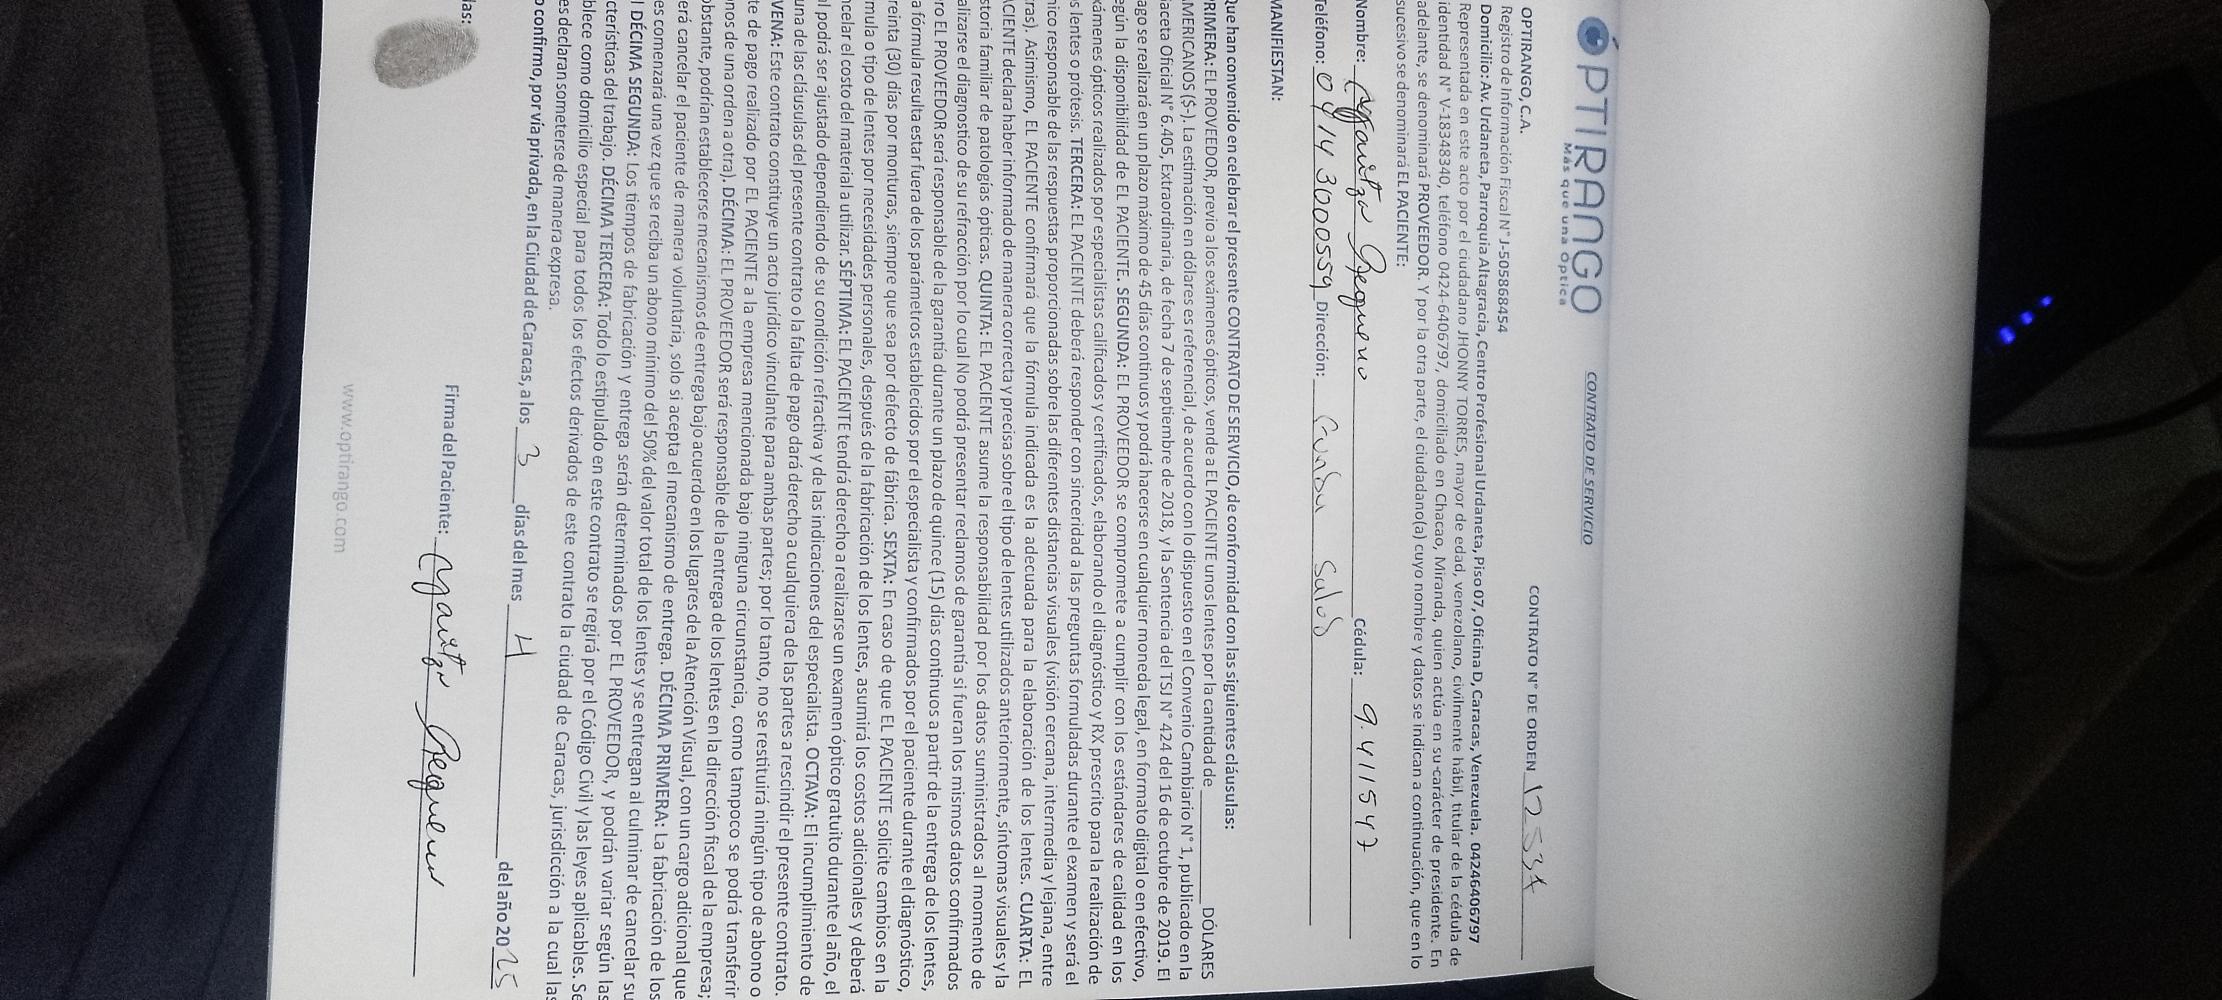 OPTIRANGO
Más que una Óptica
CONTRATO DE SERVICIO
CONTRATO N° DE ORDEN
OPTIRANGO, C.A.
Registro de Información Fiscal N° J-505868454
Domicilio: Av. Urdaneta, Parroquia Altagracia, Centro Profesional Urdaneta, Piso 07, Oficina D, Caracas, Venezuela. 04246406797
Representada en este acto por el ciudadano JHONNY TORRES, mayor de edad, venezolano, civilmente hábil, titular de la cédula de
identidad N° V-18348340, teléfono 0424-6406797, domiciliado en Chacao, Miranda, quien actúa en su carácter de presidente. En
adelante, se denominará PROVEEDOR. Y por la otra parte, el ciudadano(a) cuyo nombre y datos se indican a continuación, que en lo
sucesivo se denominará EL PACIENTE:
Nombre: Cédula: 9.411547
Teléfono: 0414 3000559 Dirección:
MANIFIESTAN:
Que han convenido en celebrar el presente CONTRATO DE SERVICIO, de conformidad con las siguientes cláusulas:
PRIMERA: EL PROVEEDOR, previo a los exámenes ópticos, vende a EL PACIENTE unos lentes por la cantidad de DÓLARES
AMERICANOS ($-). La estimación en dólares es referencial, de acuerdo con lo dispuesto en el Convenio Cambiario N° 1, publicado en la
Gaceta Oficial N° 6.405, Extraordinaria, de fecha 7 de septiembre de 2018, y la Sentencia del TSJ N° 424 del 16 de octubre de 2019. El
pago se realizará en un plazo máximo de 45 días continuos y podrá hacerse en cualquier moneda legal, en formato digital o en efectivo,
según la disponibilidad de EL PACIENTE. SEGUNDA: EL PROVEEDOR se compromete a cumplir con los estándares de calidad en los
exámenes ópticos realizados por especialistas calificados y certificados, elaborando el diagnóstico y RX prescrito para la realización de
s lentes o prótesis. TERCERA: EL PACIENTE deberá responder con sinceridad a las preguntas formuladas durante el examen y será el
nico responsable de las respuestas proporcionadas sobre las diferentes distancias visuales (visión cercana, intermedia y lejana, entre
ras). Asimismo, EL PACIENTE confirmará que la fórmula indicada es la adecuada para la elaboración de los lentes. CUARTA: EL
ACIENTE declara haber informado de manera correcta y precisa sobre el tipo de lentes utilizados anteriormente, síntomas visuales y la
storia familiar de patologías ópticas. QUINTA: EL PACIENTE asume la responsabilidad por los datos suministrados al momento de
alizarse el diagnostico de su refracción por lo cual No podrá presentar reclamos de garantía si fueran los mismos datos confirmados
ro EL PROVEEDOR será responsable de la garantía durante un plazo de quince (15) días continuos a partir de la entrega de los lentes,
a fórmula resulta estar fuera de los parámetros establecidos por el especialista y confirmados por el paciente durante el diagnóstico,
reinta (30) días por monturas, siempre que sea por defecto de fábrica. SEXTA: En caso de que EL PACIENTE solicite cambios en la
mula o tipo de lentes por necesidades personales, después de la fabricación de los lentes, asumirá los costos adicionales y deberá
ncelar el costo del material a utilizar. SÉPTIMA: EL PACIENTE tendrá derecho a realizarse un examen óptico gratuito durante el año, el
l podrá ser ajustado dependiendo de su condición refractiva y de las indicaciones del especialista. OCTAVA: El incumplimiento de
una de las cláusulas del presente contrato o la falta de pago dará derecho a cualquiera de las partes a rescindir el presente contrato.
VENA: Este contrato constituye un acto jurídico vinculante para ambas partes; por lo tanto, no se restituirá ningún tipo de abono o
te de pago realizado por EL PACIENTE a la empresa mencionada bajo ninguna circunstancia, como tampoco se podrá transferir
nos de una orden a otra). DÉCIMA: EL PROVEEDOR será responsable de la entrega de los lentes en la dirección fiscal de la empresa;
obstante, podrían establecerse mecanismos de entrega bajo acuerdo en los lugares de la Atención Visual, con un cargo adicional que
erá cancelar el paciente de manera voluntaria, solo si acepta el mecanismo de entrega. DÉCIMA PRIMERA: La fabricación de los
es comenzará una vez que se reciba un abono mínimo del 50% del valor total de los lentes y se entregan al culminar de cancelar su
l DÉCIMA SEGUNDA: Los tiempos de fabricación y entrega serán determinados por EL PROVEEDOR, y podrán variar según las
cterísticas del trabajo. DÉCIMA TERCERA: Todo lo estipulado en este contrato se regirá por el Código Civil y las leyes aplicables. Se
blece como domicilio especial para todos los efectos derivados de este contrato la ciudad de Caracas, jurisdicción a la cual las
es declaran someterse de manera expresa.
o confirmo, por vía privada, en la Ciudad de Caracas, a los 3 días del mes 4 del año 2025
las:
Firma del Paciente:
www.optirango.com